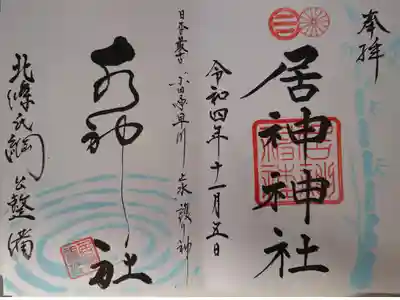 奉拝
居神神社
令和四年十一月五日
日本最古 小田原早川上水 護り神
水神社
北條氏綱公整備